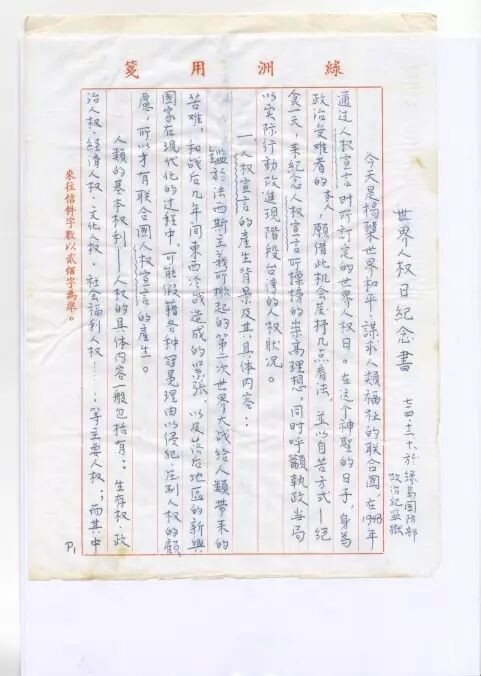 綠洲用箋
世界人权日紀念書
七四、十二、十、於綠島國防部
政治犯監獄
今天是揭櫫世界和平、謀求人類福祉的联合國,在1948年
通过人权宣言时所訂定的世界人权日。在这个神聖的日子,身為
政治受难者的本人,願借此机会发抒几点看法,並以自苦方式—絕
食一天,来紀念人权宣言所標榜的崇高理想,同時呼籲執政当局
以实际行動改進現階段台湾的人权狀況。
一、人权宣言的產生背景及其具体內容:
鑑於法西斯主義所掀起的第二次世界大战給人類带来的
苦难,和战后几年间東西冷战造成的紧張,以及落后地區的新興
國家在現代化的过程中,可能假藉各种冠冕理由以侵犯、压制人权的顧
慮,所以才有联合國人权宣言的產生。
人類的基本权利——人权的具体內容一般包括有:生存权、政
治人权、經濟人权、文化权、社会福利人权……等主要人权;而其中
來往信件字數以貳佰字為準。
P.1